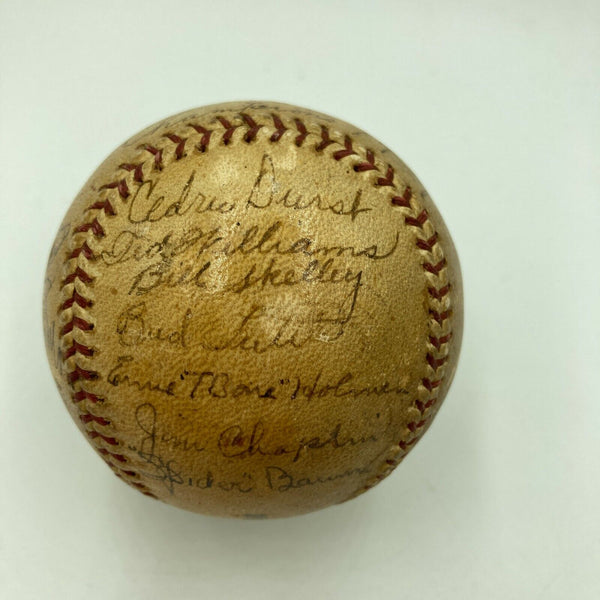 Cedric Durst
Ted Williams
Bill Skelley
Bud
Ernie "T Bone" Holman
Jim Chaplin
"Spider" Baum